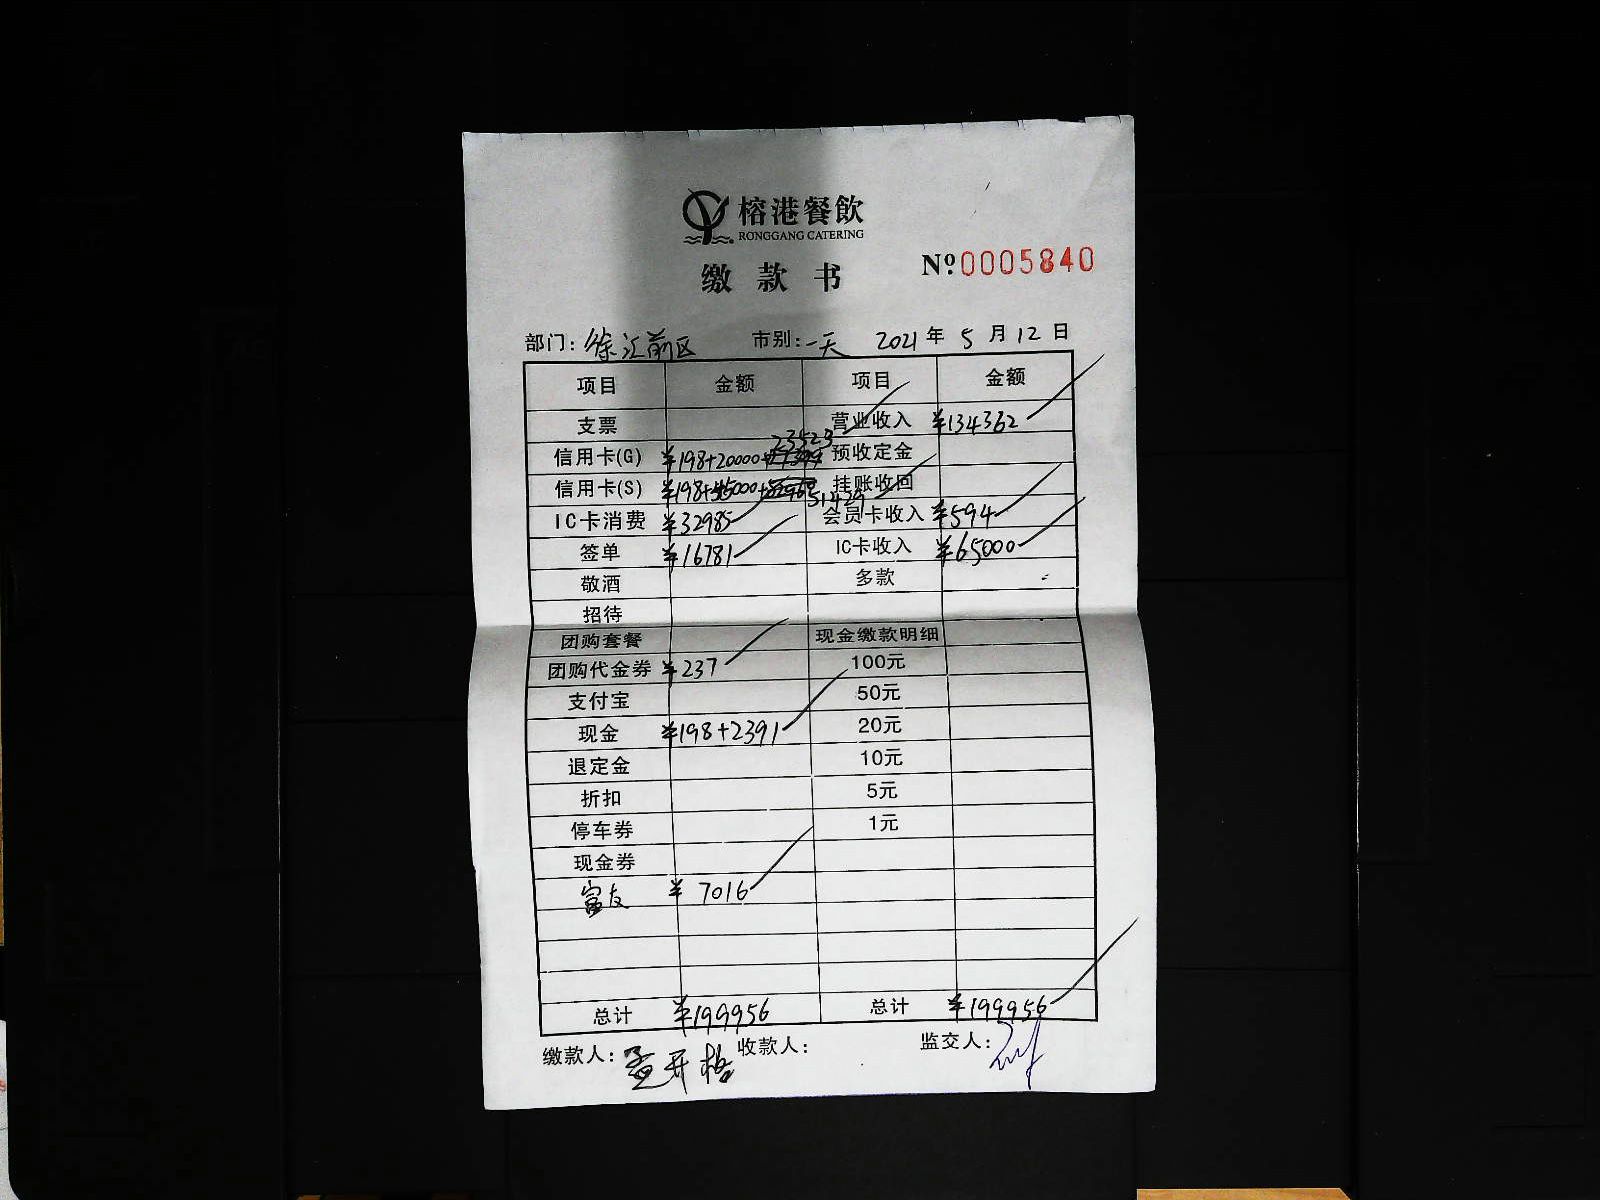 榕港餐飲
RONGGANG CATERING
缴款书
Nº 0005840
部门：徐汇前区 市别：一天 2021年5月12日
项目 金额 项目 金额
支票 营业收入 ¥134362
信用卡(G) ¥198+20000+23523 预收定金
信用卡(S) ¥198+45000+51429 挂账收回
IC卡消费 ¥32985 会员卡收入 ¥594
签单 ¥16781 IC卡收入 ¥65000
敬酒 多款
招待
团购套餐 现金缴款明细
团购代金券 ¥237 100元
支付宝 50元
现金 ¥198+2391 20元
退定金 10元
折扣 5元
停车券 1元
现金券
富友 ¥7016
总计 ¥199956 总计 ¥199956
缴款人：孟开格 收款人： 监交人：